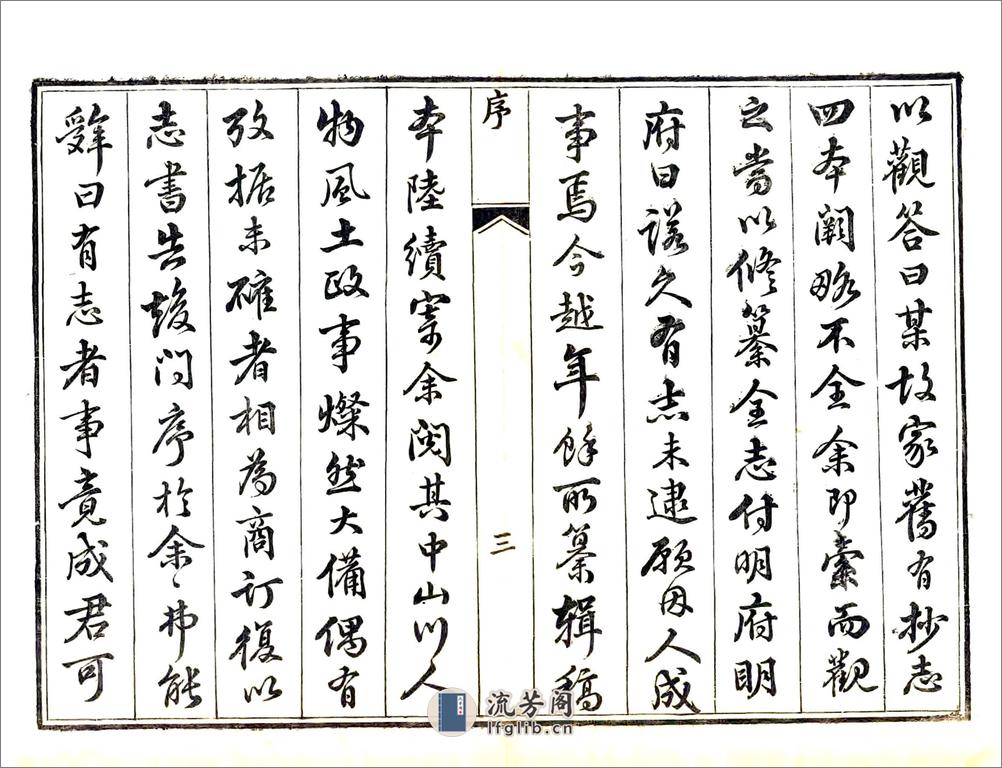 以觀答曰某故家舊有抄志
四本闕略不全余即索而觀
之嘗以修纂全志付明府明
府曰諾久有志未逮願因人成
事焉今越年餘所纂輯稿
序
三
本陸續寄余閱其中山川人
物風土政事燦然大備偶有
攷据未確者相為商訂復以
志書告竣問序於余〻弗能
辭曰有志者事竟成君可
流芳阁
lfglib.cn